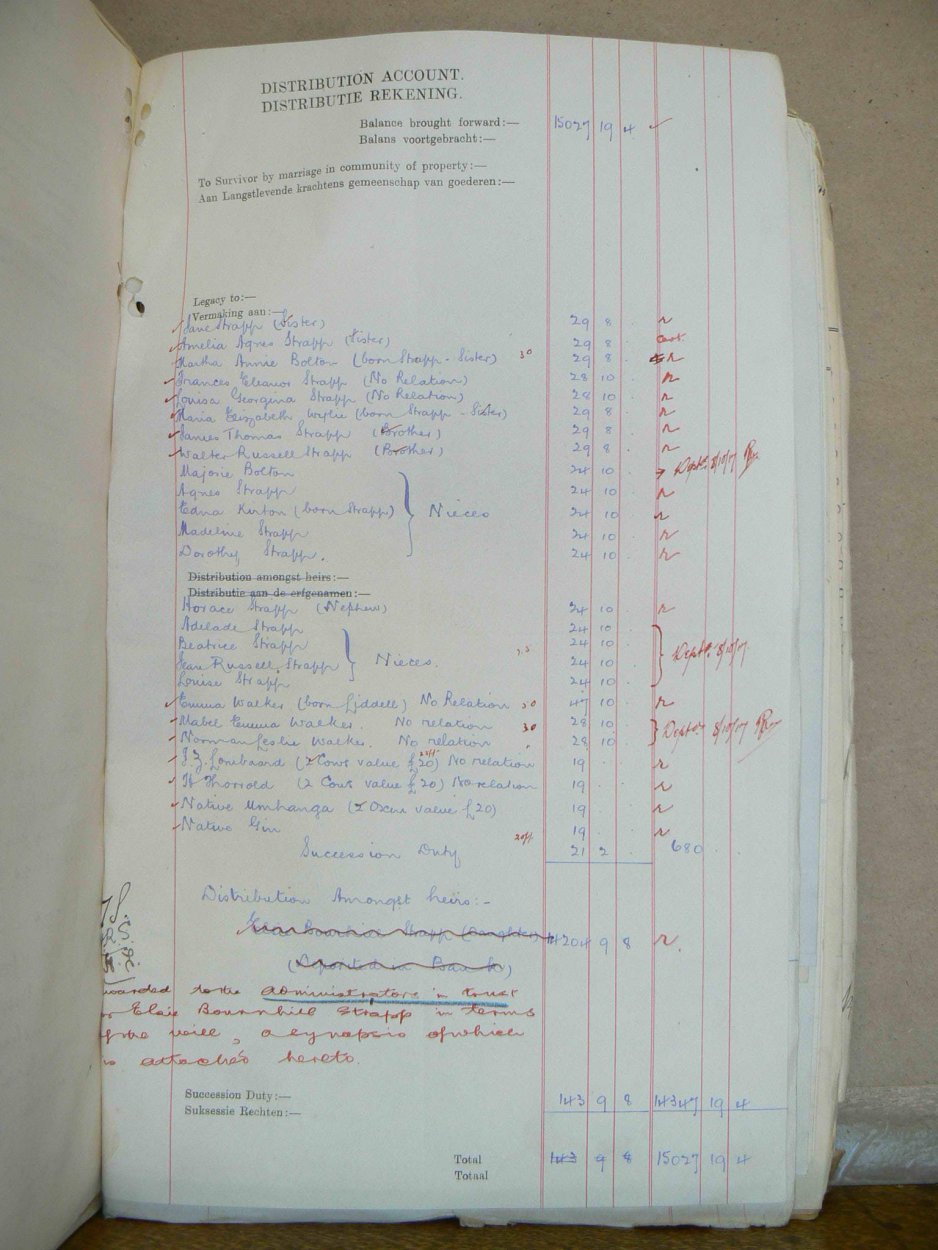 DISTRIBUTION ACCOUNT.
DISTRIBUTIE REKENING.
Balance brought forward:— 15027 19 4
Balans voortgebracht:—
To Survivor by marriage in community of property:—
Aan Langstlevende krachtens gemeenschap van goederen:—
Legacy to:—
Vermaking aan:—
Jane Strapp (Sister) 29 8
Amelia Agnes Strapp (Sister) 29 8
Martha Annie Bolton (born Strapp - Sister) 30 29 8
Frances Eleanor Strapp (No Relation) 28 10
Louisa Georgina Strapp (No Relation) 28 10
Maria Elizabeth Wylie (born Strapp - Sister) 29 8
James Thomas Strapp (Brother) 29 8
Walter Russell Strapp (Brother) 29 8
Majorie Bolton 24 10 8/10/07
Agnes Strapp 24 10
Edna Kirton (born Strapp) Nieces 24 10
Madeline Strapp 24 10
Dorothy Strapp. 24 10
Distribution amongst heirs:—
Distributie aan de erfgenamen:—
Horace Strapp (Nephew) 24 10
Adelade Strapp 24 10
Beatrice Strapp 24 10
Jean Russell Strapp Nieces. 24 10 8/10/07
Louise Strapp 24 10
Emma Walker (born Liddell) No Relation 30 47 10
Mabel Emma Walker. No relation 30 28 10 8/10/07
Norman Leslie Walker. No relation 28 10
(2 Cows value £20) No relation 19
H Thorrold (2 Cows value £20) No relation 19
Native Umhanga (2 Oxen value £20) 19
Native Gin 19
Succession Duty 21 2 680
Distribution Amongst heirs:-
Elsie Bournhill Strapp (Daughter) 14204 9 8
(Deposited in Bank)
to the administrators in trust
Elsie Bournhill Strapp in terms
of the will, a synopsis of which
is attached hereto.
Succession Duty:— 143 9 8 14347 19 4
Suksessie Rechten:—
Total 143 9 8 15027 19 4
Totaal